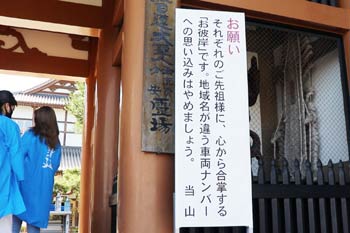 お願い
それぞれのご先祖様に、心から合掌する
「お彼岸」です。地域名が違う車両ナンバー
への思い込みはやめましょう。
当山
霊場